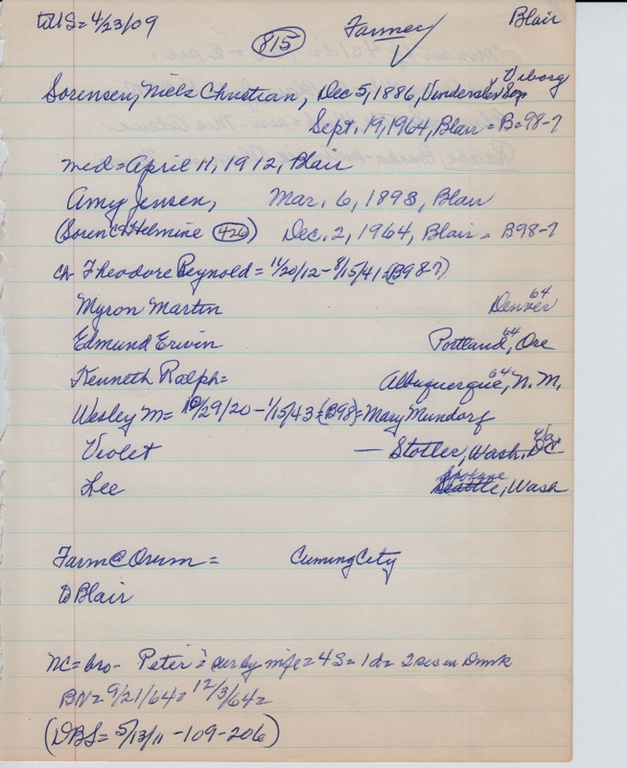 to US = 4/23/09 815 Farmer Blair
Viborg
Sorensen, Niels Christian, Dec 5, 1886, Vinderslev Sogn
Sept. 19, 1964, Blair = B=98-7
med = April 11, 1912, Blair
Amy Jensen, Mar. 6, 1893, Blair
(Soren C & Helmine 426) Dec. 2, 1964, Blair = B98-7
ch Theodore Reynold = 11/20/12 - 8/15/41 = (B98-7)
Myron Martin Denver 64
Edmund Erwin Portland 64, Ore
Kenneth Ralph = Albuquerque 64, N.M.
Wesley M = 10/29/20 - 1/15/43 = (B98) = Mary Mundorf
Violet — Stotler, Wash. DC
Lee Seattle Spokane, Wash
Farm @ Orum = Cuming City
to Blair
NC = bro - Peter = sur by wife = 4S = 1d = 2 sis in Dmk
BN = 9/21/64 = 12/3/64 =
(DBS = 5/13/11 - 109-206)